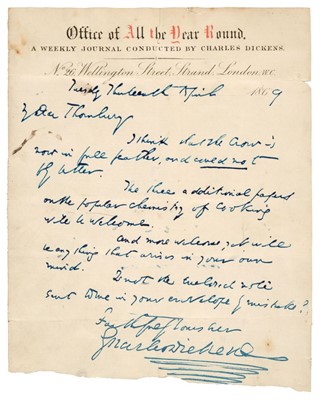 Office of All the Year Round.
A WEEKLY JOURNAL CONDUCTED BY CHARLES DICKENS.
No. 26, Wellington Street, Strand, London, W.C.
Tuesday Thirteenth April 1869
My Dear Thornbury
I think that the Crow is
now in full feather, and could not
fly better.
The three additional papers
on the popular chemistry of Cooking
will be welcome.
And more welcome, yet will
be anything that arises in your own
mind.
Is not the enclosed note
sent to me in your envelope by mistake?
Faithfully Yours ever
Charles Dickens